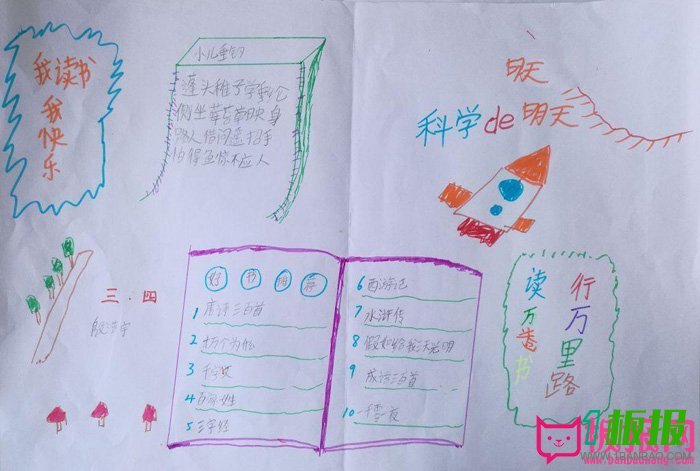 我读书
我快乐
小儿垂钓
蓬头稚子学垂纶
侧坐莓苔草映身
路人借问遥招手
怕得鱼惊不应人
明天
科学de明天
三.四
好书推荐
1 唐诗三百首
2 十万个为什么
3 千字文
4 百家姓
5 三字经
6 西游记
7 水浒传
8 假如给我三天光明
9 成语三百首
10 一千零一夜
读万卷书
行万里路
板报网
www.banbaowang.com